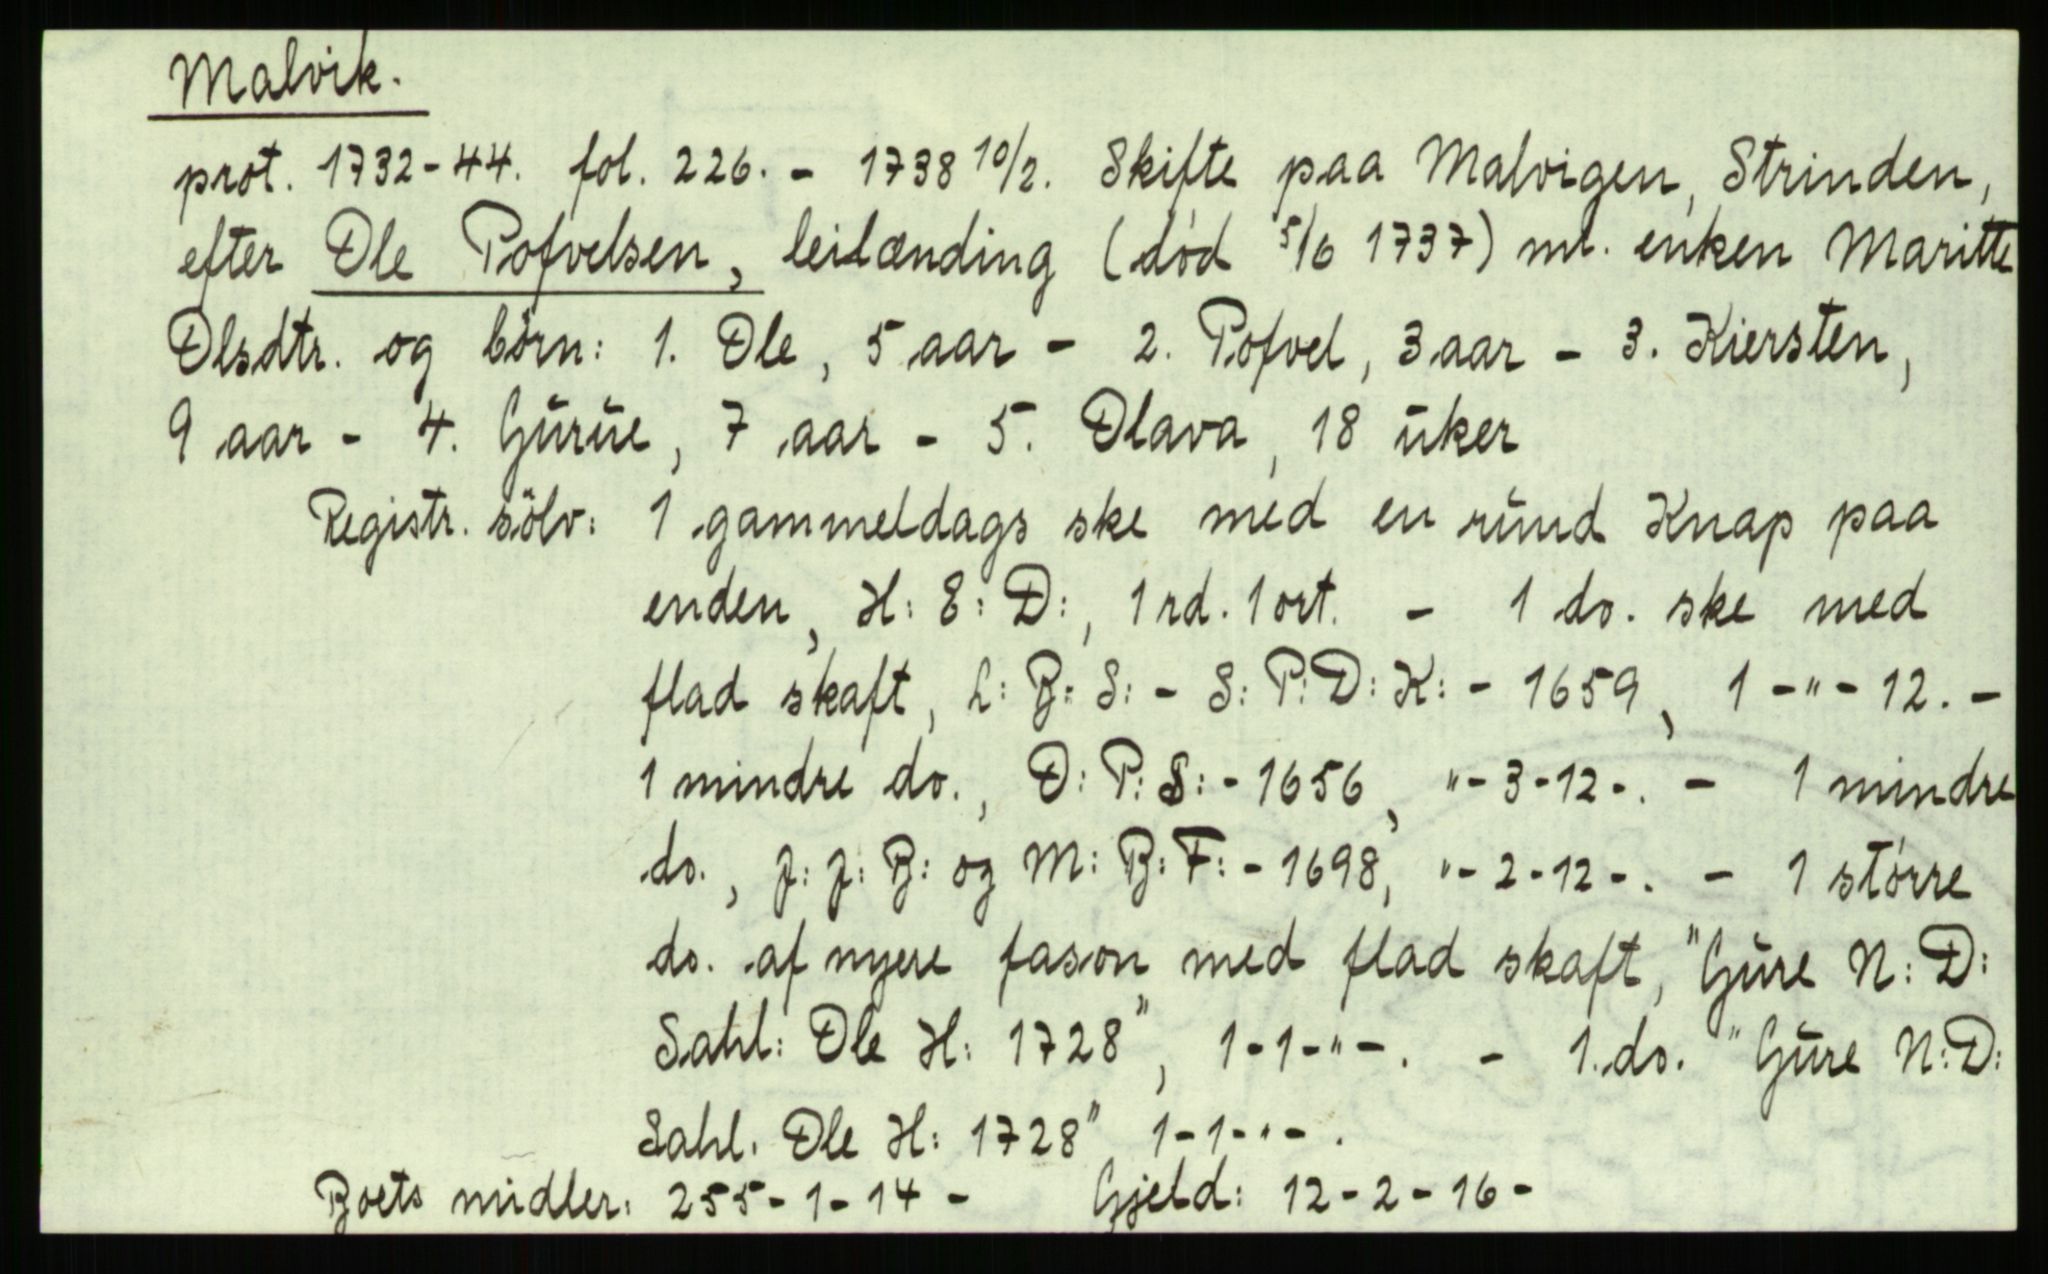 Malvik.
prot. 1732-44. fol. 226. - 1738 10/2. Skifte paa Malvigen, Strinden,
efter Ole Pofvelsen, leilænding (død 5/6 1737) ml. enken Maritte
Olsdtr. og børn: 1. Ole, 5 aar - 2. Pofvel, 3 aar - 3. Kiersten,
9 aar - 4. Gurue, 7 aar - 5. Olava, 18 uker
Registr. sölv: 1 gammeldags ske med en rund Knap paa
enden, H: E: D:, 1 rd. 1 ort. - 1 do. ske med
flad skaft, L: B: S: - S: P: D: K: - 1659, 1 - " - 12. -
1 mindre do., O: P: S: - 1656, " - 3 - 12 -. - 1 mindre
do., J: J: B: og M: B: F: - 1698, " - 2 - 12 -. - 1 större
do. af nyere fason med flad skaft, "Gure N: D:
Sahl: Ole H: 1728", 1 - 1 - " -. - 1 do. "Gure N: D:
Sahl. Ole H: 1728" 1 - 1 - " -.
Boets midler: 255 - 1 - 14 - Gjeld: 12 - 2 - 16 -